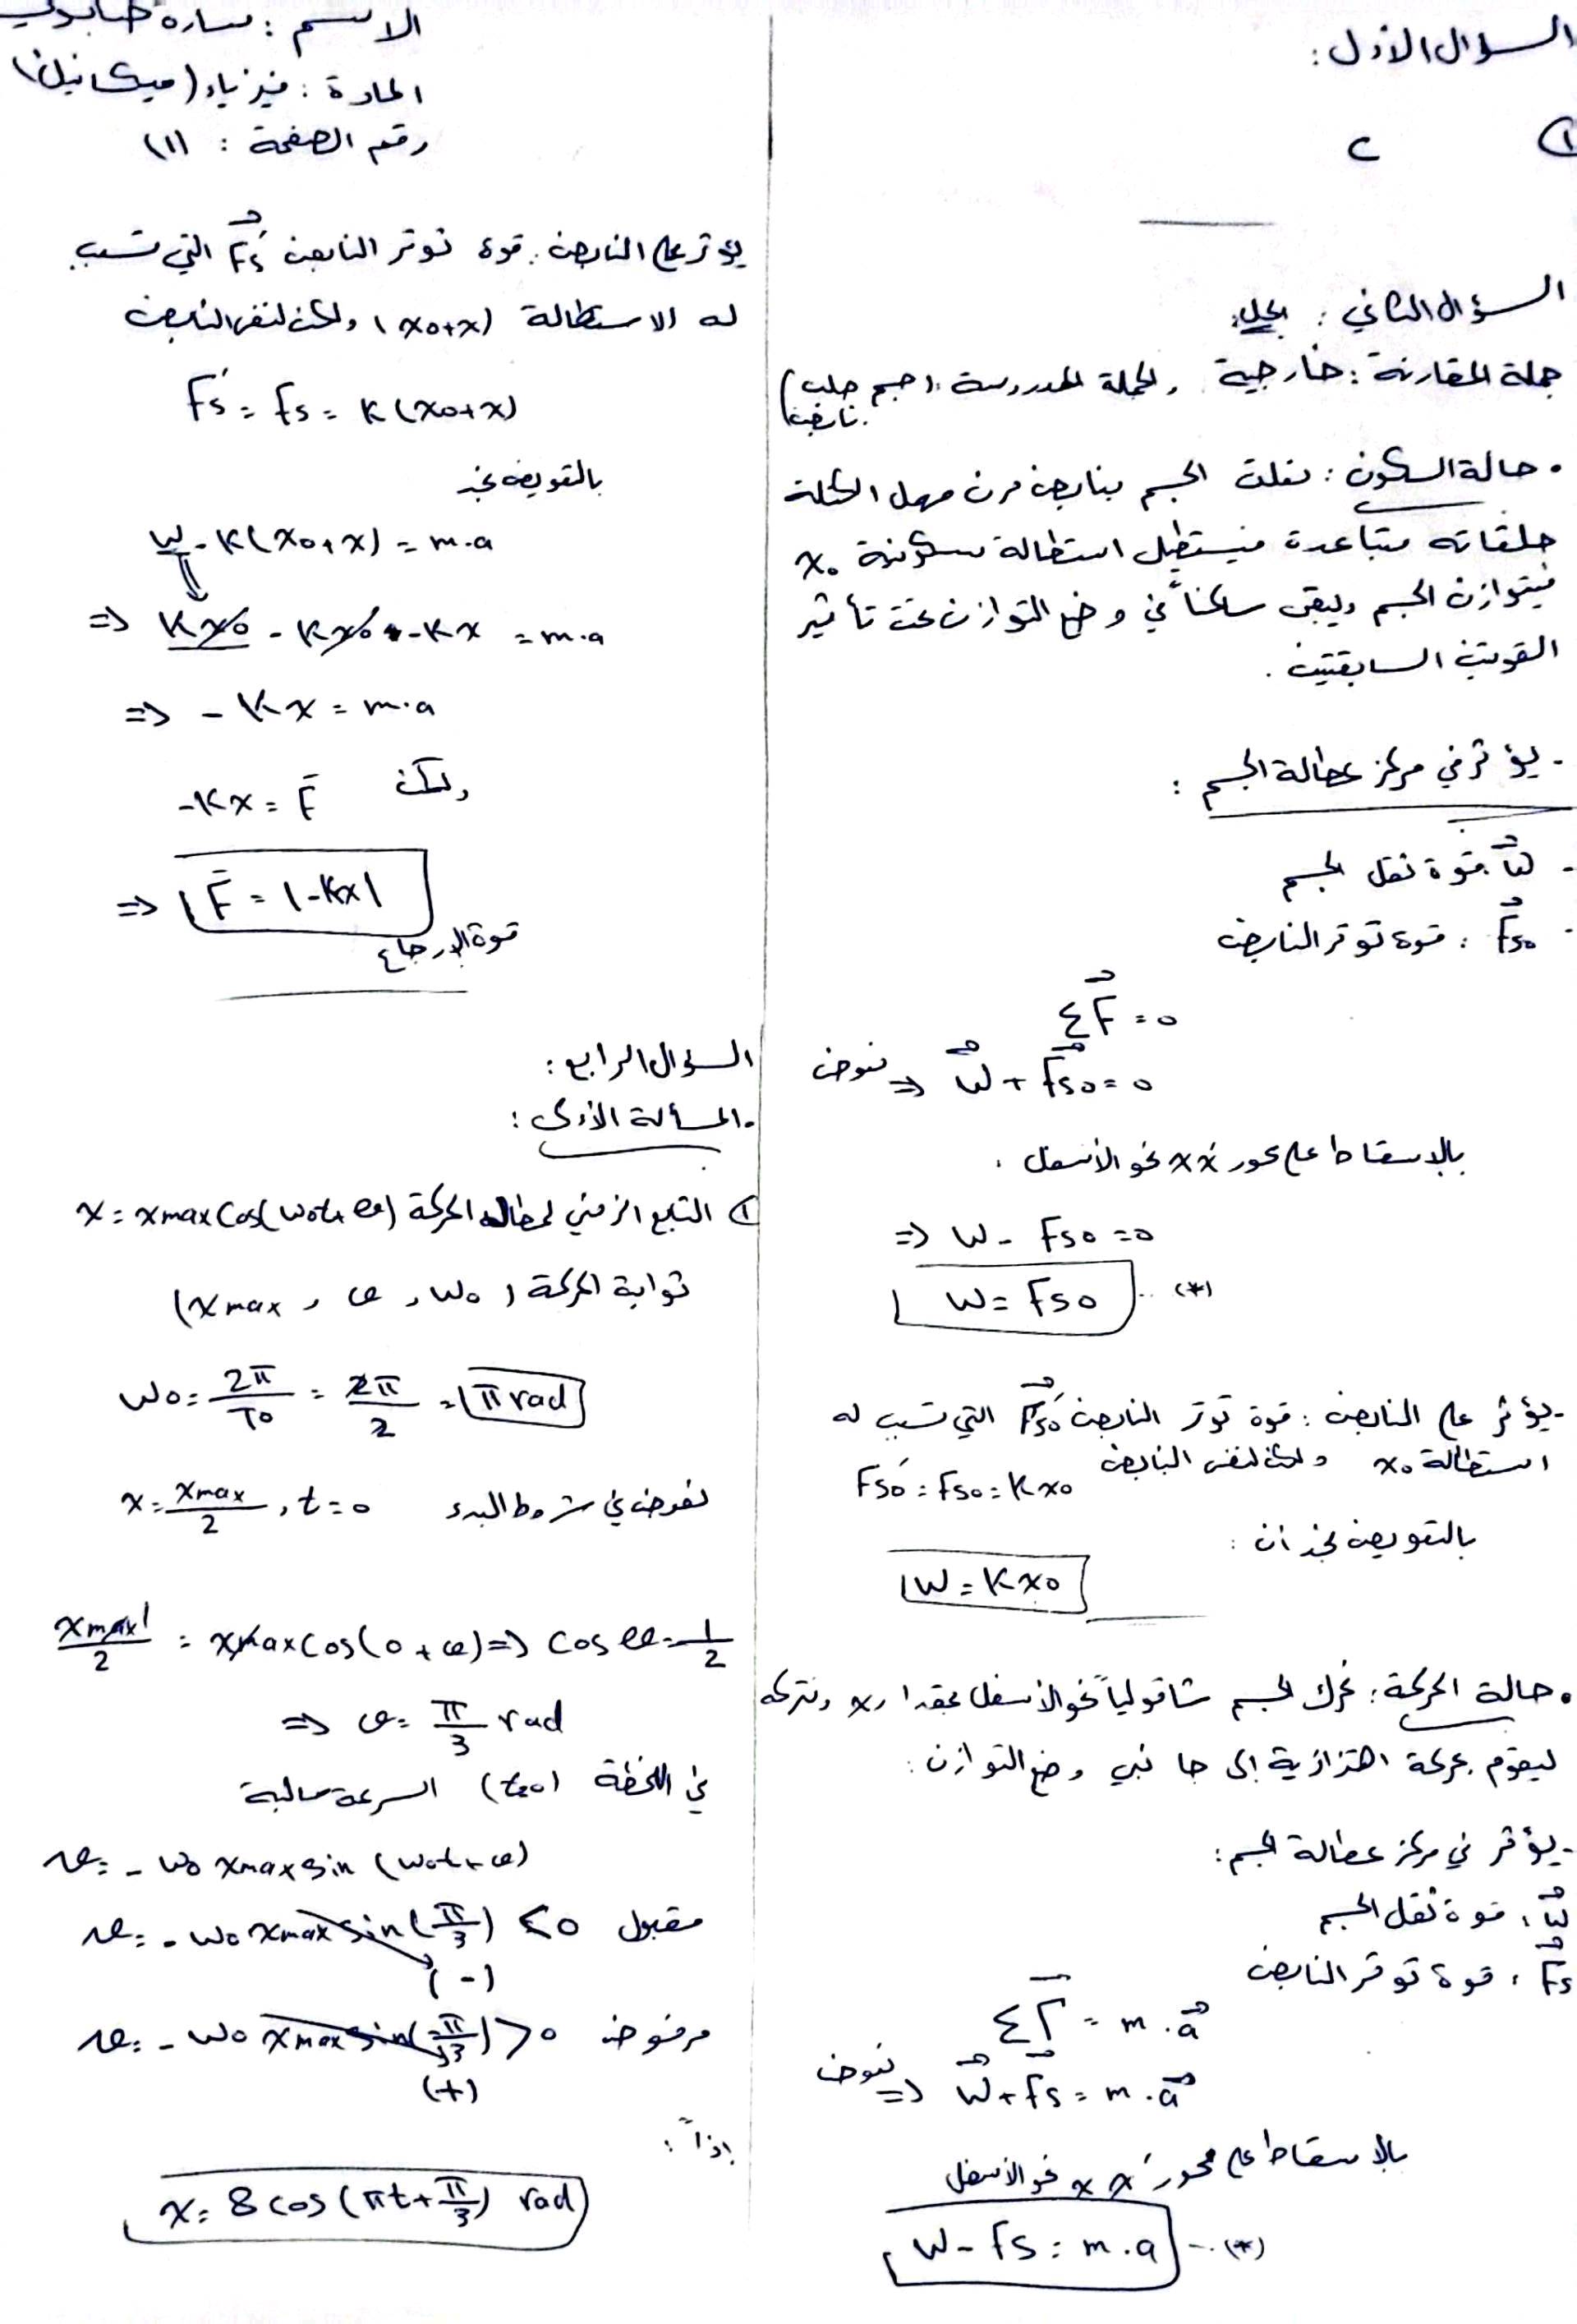 السؤال الأول :
① c
السؤال الثاني : الحل:
جملة المقارنة : خارجية , الجملة المدروسة : (جسم صلب نابض)
• حالة السكون : نعلق الجسم بنابض مرن مهمل الكتلة
حلقاته متباعدة فيستطيل استطالة سكونية x₀
فيتوازن الجسم ويبقى ساكناً في وضع التوازن تحت تأثير
القوتين السابقتين .
- يؤثر في مركز عطالة الجسم :
- W⃗ : قوة ثقل الجسم
- F⃗s₀ : قوة توتر النابض
ΣF⃗ = 0
W⃗ + F⃗s₀ = 0 ⇒ نعوض
بالإسقاط على محور xx́ نحو الأسفل .
⇒ W - Fs₀ = 0
W = Fs₀ ...(*)
- يؤثر على النابض : قوة توتر النابض F⃗ś₀ التي تسبب له
استطالة x₀ ولكن لنفس النابض Fś₀ = Fs₀ = Kx₀
بالتعويض نجد أن :
W = Kx₀
• حالة الحركة : نحرك الجسم شاقولياً نحو الأسفل بمقدار x ونتركه
ليقوم بحركة اهتزازية إلى جانبي وضع التوازن :
- يؤثر في مركز عطالة الجسم :
W⃗ : قوة ثقل الجسم
F⃗s : قوة توتر النابض
ΣF⃗ = m.a⃗
W⃗ + F⃗s = m.a⃗ ⇒ نعوض
بالإسقاط على محور xx́ نحو الأسفل
W - Fs = m.a ...(*)
الاسم : سارة
المادة : فيزياء (ميكانيك)
رقم الصفحة : (1)
يؤثر على النابض : قوة توتر النابض F⃗ś التي تسبب
له الاستطالة (x₀+x) ولكن لنفس النابض
Fś = Fs = K(x₀+x)
بالتعويض نجد
W - K(x₀+x) = m.a
⇒ Kx₀ - Kx₀ - Kx = m.a
⇒ - Kx = m.a
ولكن -Kx = F̄
⇒ F̄ = |-Kx|
قوة الإرجاع
السؤال الرابع :
• المسألة الأولى :
① التابع الزمني لمطال الحركة x = xmax cos(ω₀t+φ)
ثوابت الحركة (xmax , φ , ω₀)
ω₀ = 2π/T₀ = 2π/2 = π rad
نعوض في شروط البدء x = xmax/2 , t = 0
xmax/2 = xmax cos(0+φ) ⇒ cos φ = 1/2
⇒ φ = π/3 rad
في اللحظة (t=0) السرعة سالبة
v = - ω₀ xmax sin(ω₀t+φ)
v = - ω₀ xmax sin(π/3) < 0 مقبول
(-)
v = - ω₀ xmax sin(-π/3) > 0 مرفوض
(+)
إذاً :
x = 8 cos(πt+π/3) rad